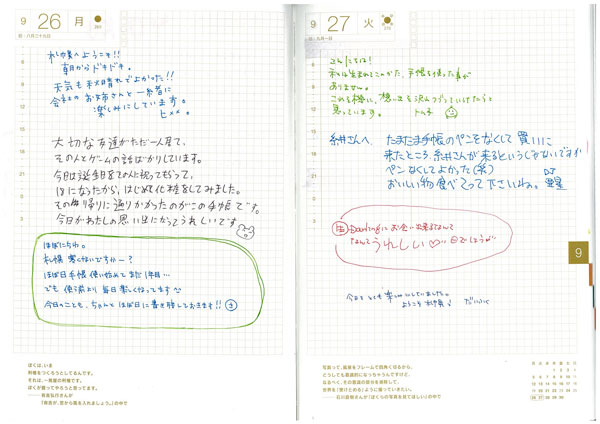 9 26 月
札幌へようこそ!!
朝からドキドキ。
天気も秋晴れでよかった!!
会社のお姉さんと一緒に
楽しみにしています。
ヒメ。
大切な友達がただ一人居て、
その人とゲームの話ばかりしています。
今日は誕生日をその人に祝ってもらって、
18になったから、はじめて化粧をしてみました。
その帰りに通りかかったのがこの手帳です。
今日がわたしの思い出になってうれしいです
ほぼにちわ。
札幌 寒くないですかー?
ほぼ日手帳 使い始めて まだ1年目…
でも 使う前より 毎日 楽しくなってます
今日のことも、ちゃんと ほぼ日に書き残しておきます!!
ぼくは、いま
時間をつくろうとしてるんです。
それは、一種類の時間です。
ぼくが撮ってやろうと思ってます。
9 27 火
こんにちは!
私は生まれてこのかた、手帳を使った事が
ありません。
この機会に、想い出を沢山つくっていけたらと
思っています。
糸井さんへ
たまたま手帳のペンをなくして買いに
来たところ、糸井さんが来るというじゃないですか
ペンなくしてよかった(笑)
おいしい物食べてって下さいね。
Darlingにお会い出来るなんて
なんてうれしい♡日でしょうか
今日をとても楽しみにしていました。
ようこそ札幌へ
9
写真って、風景をフレームで四角く切るから、
どうしても意図的になっちゃうんですけど、
なるべく、その意図の部分を消して、
世界を「受けとめる」ように撮っていきたい。
——石川直樹さんが『ぼくらの写真を見てほしい』の中で